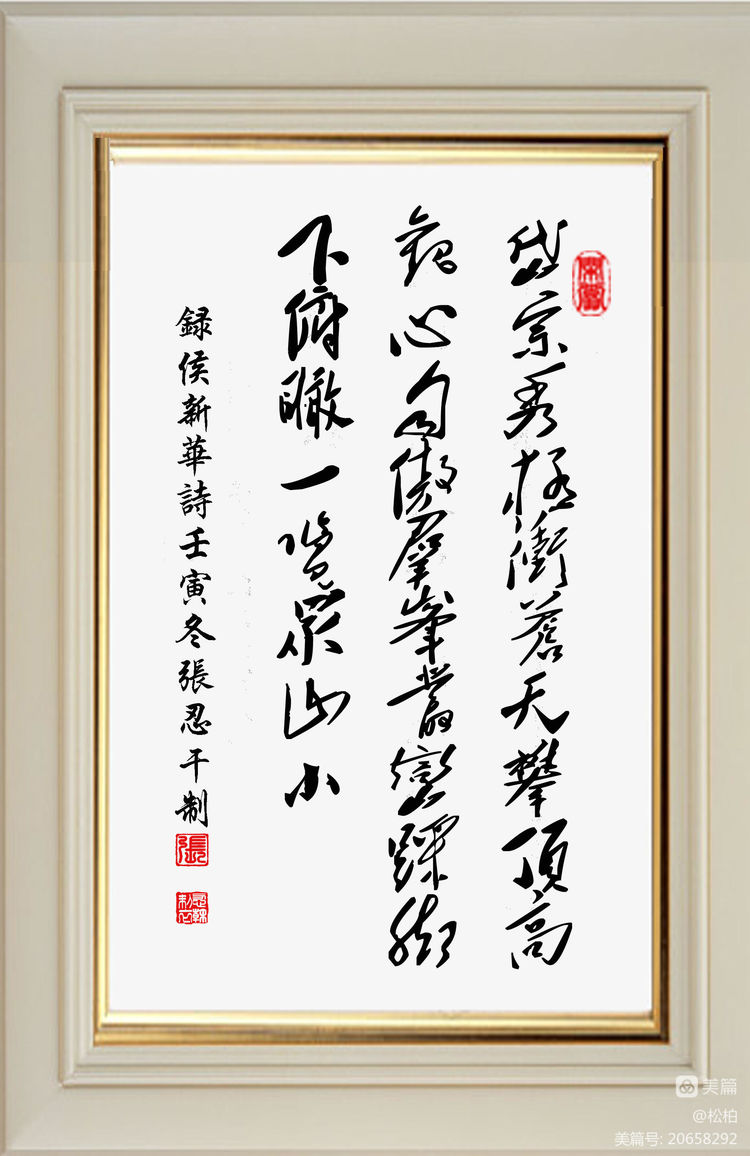 岱宗秀极衝蒼天攀頂高
觀心自傲羣峯巒踩脚
下俯瞰一覽眾山小
録侯新華詩壬寅冬張忍干制
張
美篇
@松柏
美篇号: 20658292